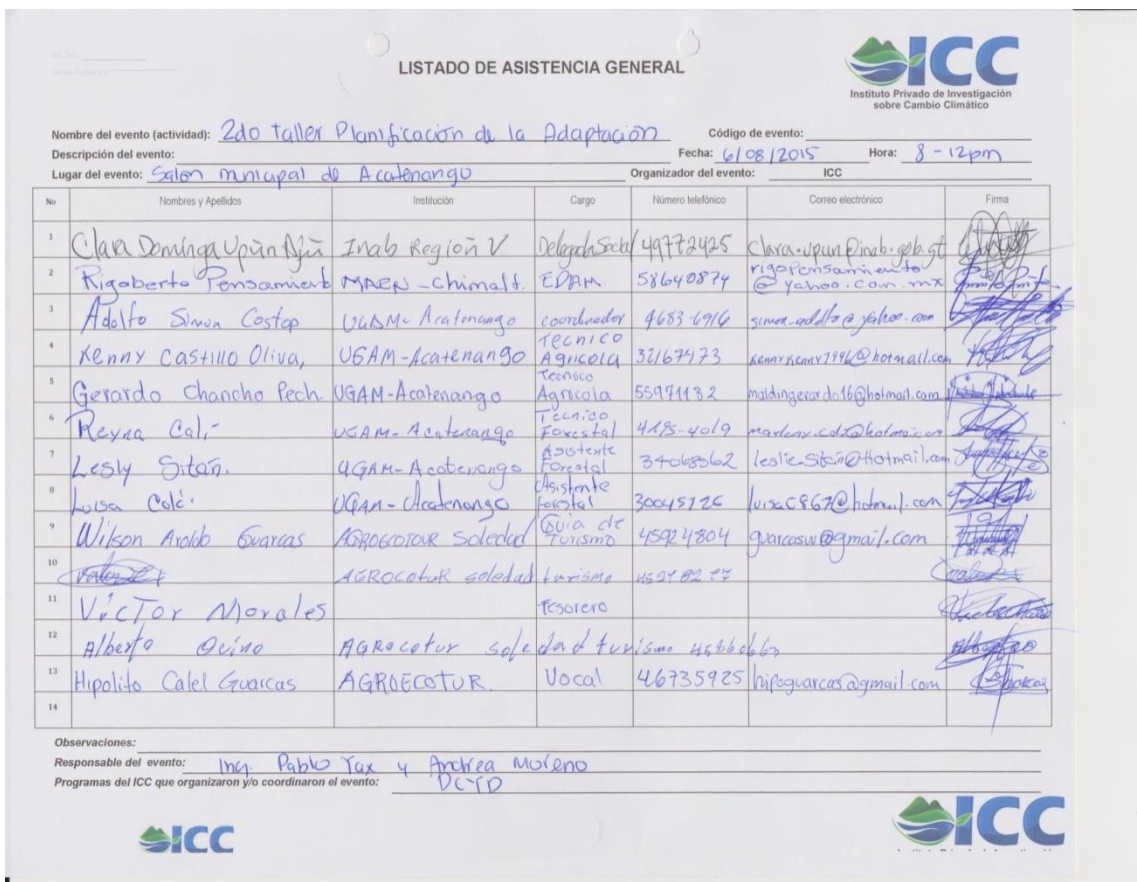 LISTADO DE ASISTENCIA GENERAL
ICC
Instituto Privado de Investigación
sobre Cambio Climático
Nombre del evento (actividad): 2do taller Planificación de la Adaptación Código de evento:
Descripción del evento: Fecha: 6/08/2015 Hora: 8-12pm
Lugar del evento: Salón municipal de Acatenango Organizador del evento: ICC
No Nombres y Apellidos Institución Cargo Número telefónico Correo electrónico Firma
1 Clara Dominga Upún Ajú Inab Región V Delegada Social 49772425 clara.upun@inab.gob.gt
2 Rigoberto Pensamiento MAEN-Chimalt. EDAM. 58640874 rigopensamiento
@yahoo.com.mx
3 Adolfo Simon UGAM-Acatenango coordinador 4683-6916
4 Kenny Castillo Oliva, UGAM-Acatenango Tecnico
Agricola 32167473
5 Gerardo Chancho Pech. UGAM-Acatenango Tecnico
Agricola 55971132 maldingerardo16@hotmail.com
6 Reyna Calí UGAM-Acatenango Tecnico
Forestal 4195-4019
7 Lesly Sitán. UGAM-Acatenango Asistente
Forestal 34068562
8 Luisa UGAM-Acatenango Asistente
forestal 30045726 luisac867@hotmail.com
9 Wilson Aroldo Guarcas Soledad Guia de
Turismo 45924804 guarcasw@gmail.com
10 AGROCOTUR soledad turismo
11 Víctor Morales Tesorero
12 Alberto Quino AGROCOTUR soledad turismo
13 Hipolito Calel Guarcas AGROECOTUR. Vocal 46735925 hipoguarcas@gmail.com
14
Observaciones:
Responsable del evento: Ing. Pablo Yax y Andrea Moreno
Programas del ICC que organizaron y/o coordinaron el evento:
ICC
ICC